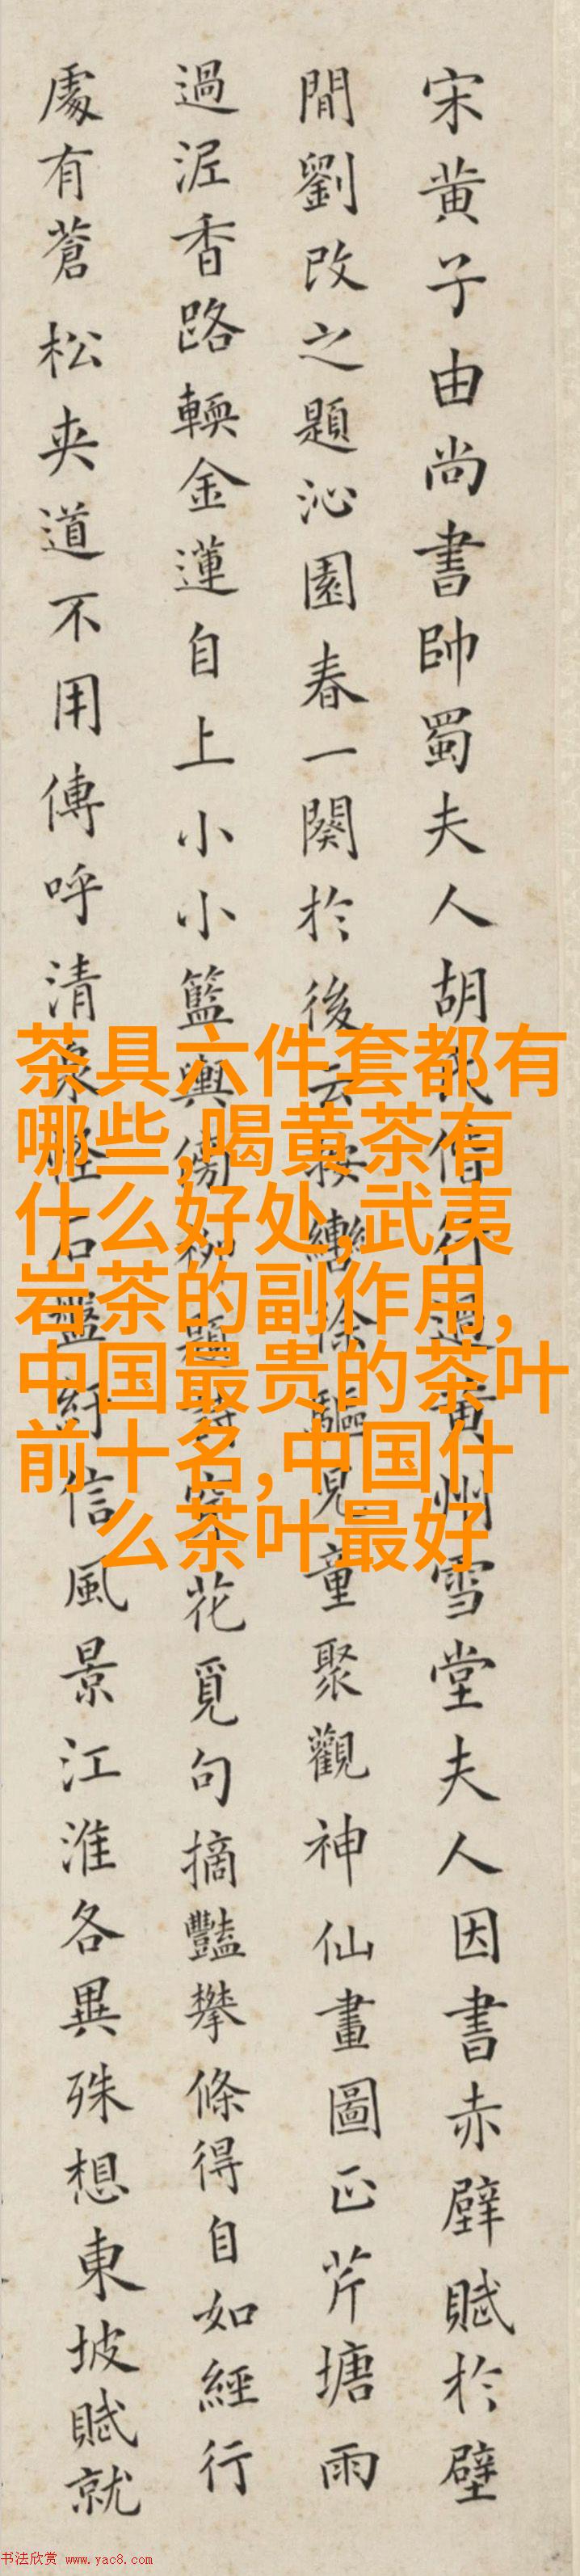 宋黄子由尚書帥蜀夫人胡氏偕行過黄州雪堂夫人因書赤壁賦於壁
間劉改之題沁園春一闋於後云按轡徐驅兒童聚觀神仙畫圖正芹塘雨
過泥香路輭金蓮自上小小籃輿傍柳題詩穿花覓句摘豔攀條得自如經行
處有蒼松夾道不用傳呼清泉怪石盤紆信風景江淮各異殊想東坡賦就
茶具六件套都有
哪些,喝黄茶有
什么好处,武夷
岩茶的副作用,
中国最贵的茶叶
前十名,中国什
么茶叶最好
书法欣赏 www.yac8.com